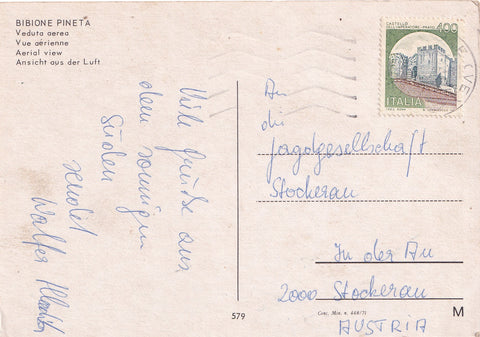 BIBIONE PINETA
Veduta aerea
Vue aérienne
Aerial view
Ansicht aus der Luft
CASTELLO
DELL'IMPERATORE - PRATO
400
ITALIA
Viele Grüße aus
dem sonnigen
Süden
sendet
An
die
Jagdgesellschaft
Stockerau
In der Au
2000 Stockerau
AUSTRIA
579
Conc. Min. n. 468/71
M